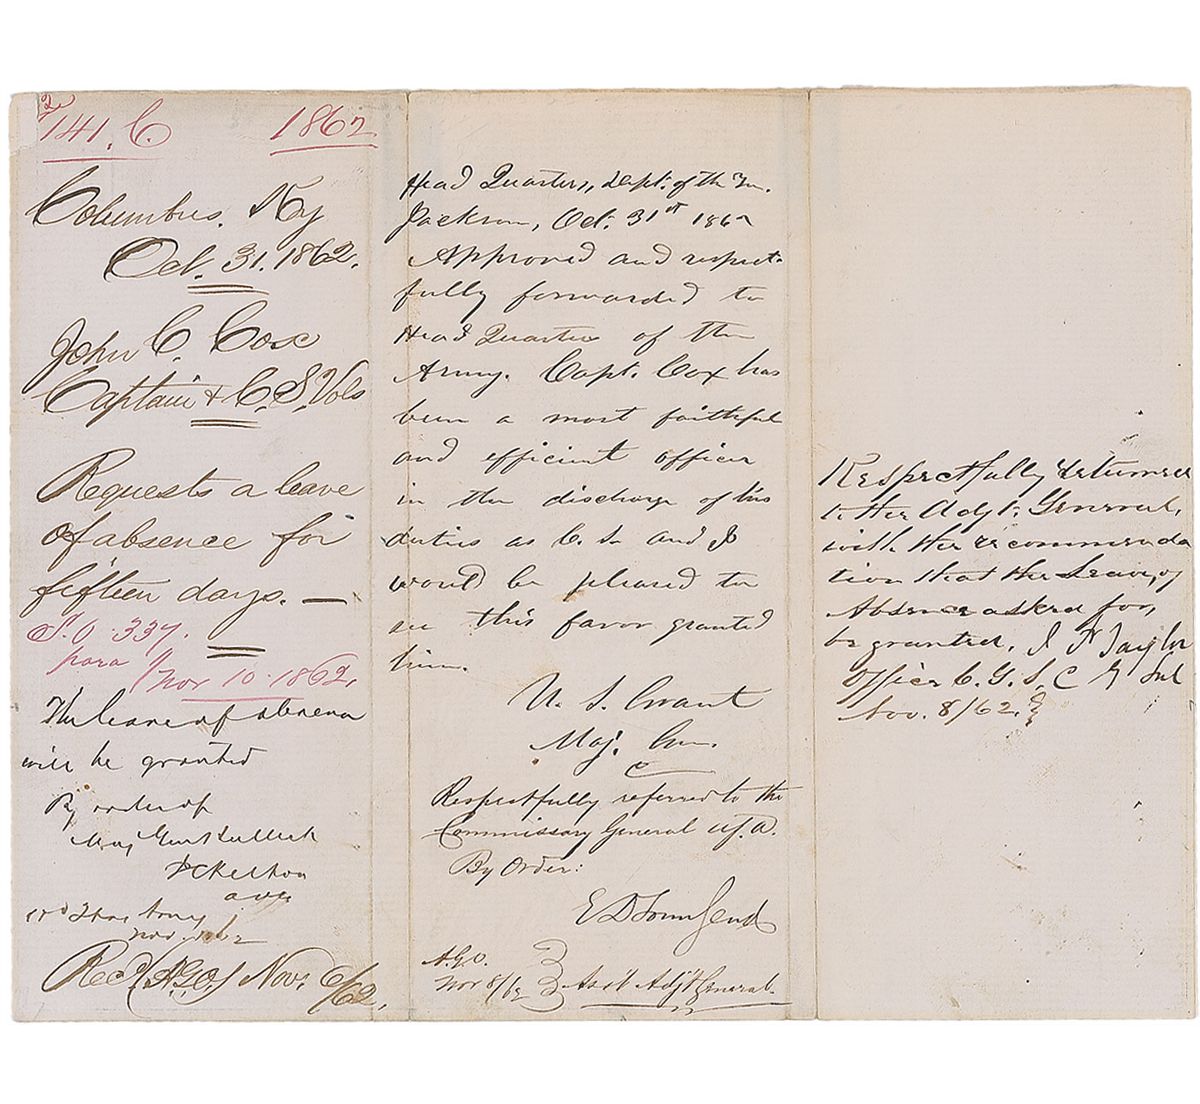 141. C. 1862
Columbus, Ky
Oct. 31. 1862.
John C. Cox
Captain & C. S. Vols
Requests a leave
of absence for
fifteen days. —
S. O. 337.
para
Nov 10. 1862.
The leave of absence
will be granted
By order of
Maj Genl Halleck
J C Kelton
AAG
Hdqrs Army
Nov
Recd (A.G.O.) Nov. 6/62.
Head Quarters, Dept. of the Ten.
Jackson, Oct. 31st 1862
Approved and respect-
fully forwarded to
Head Quarters of the
Army. Capt. Cox has
been a most faithful
and efficient officer
in the discharge of his
duties as C. S. and I
would be pleased to
see this favor granted
him.
U. S. Grant
Maj. Gen.
Respectfully referred to the
Commissary General U.S.A.
By Order:
E D Townsend
A.G.O.
Nov 8/62 Asst Adjt General.
Respectfully returned
to the Adjt. General,
with the recommenda
tion that the Leave, of
Absence asked for,
be granted. J P Taylor
Office C. G. S. C G Sub
Nov. 8/62.